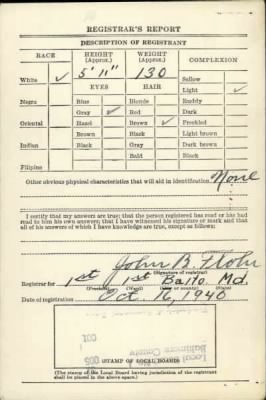 REGISTRAR'S REPORT
DESCRIPTION OF REGISTRANT
RACE HEIGHT (Approx.) WEIGHT (Approx.) COMPLEXION
White ✓ 5' 11" 130 Sallow
EYES HAIR Light ✓
Negro Blue Blonde Ruddy
Gray ✓ Red Dark
Oriental Hazel Brown ✓ Freckled
Brown Black Light brown
Indian Black Gray Dark brown
Bald Black
Filipino
Other obvious physical characteristics that will aid in identification None
I certify that my answers are true; that the person registered has read or has had
read to him his own answers; that I have witnessed his signature or mark and that
all of his answers of which I have knowledge are true, except as follows:
John B.
(Signature of registrar)
Registrar for 1st 1st Balto. Md.
(Precinct) (Ward) (City or county) (State)
Date of registration Oct. 16, 1940
Local
Baltimore County
005
(STAMP OF LOCAL BOARD)
(The stamp of the Local Board having jurisdiction of the registrant
shall be placed in the above space.)